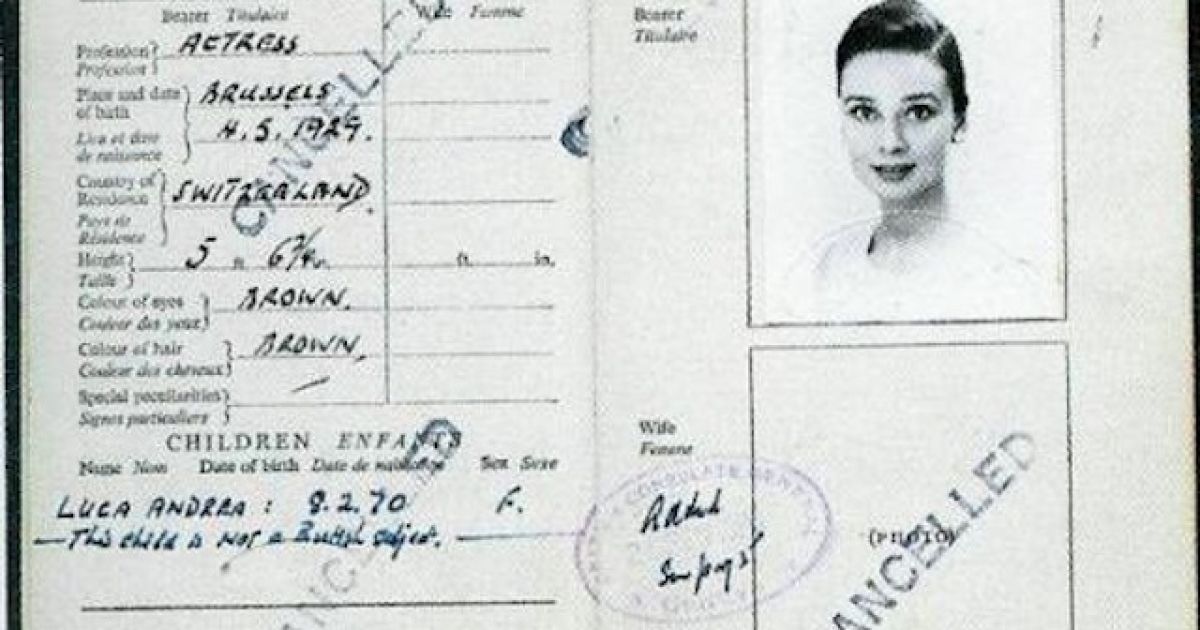 Bearer Titulaire
Wife Femme
Profession
Profession
ACTRESS
Place and date
of birth
Lieu et date
de naissance
BRUSSELS
4.5.1929.
Country of
Residence
Pays de
Résidence
SWITZERLAND.
Height
Taille
5 ft. 6¾ in.
ft. in.
Colour of eyes
Couleur des yeux
BROWN.
Colour of hair
Couleur des cheveux
BROWN.
Special peculiarities
Signes particuliers
CANCELLED
CHILDREN ENFANTS
Name Nom Date of birth Date de naissance Sex Sexe
LUCA ANDREA : 8.2.70 F.
This child is not a British subject.
CANCELLED
Bearer
Titulaire
Wife
Femme
CONSULATE GENERAL
(PHOTO)
CANCELLED